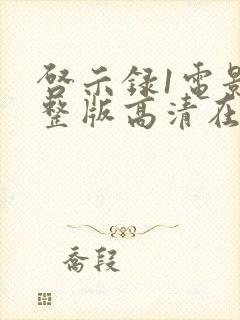 启示录1电影
整版高清在
乔段